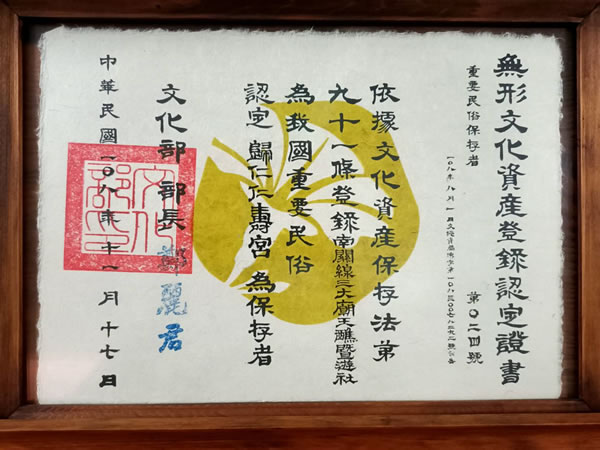 無形文化資產登錄認定證書
重要民俗保存者
第〇二四號
依據文化資產保存法第
九十一條登錄南關線三大廟王醮暨遊社
為我國重要民俗
認定歸仁仁壽宮為保存者
文化部部長鄭麗君
文化部印
中華民國一〇八年十一月十七日